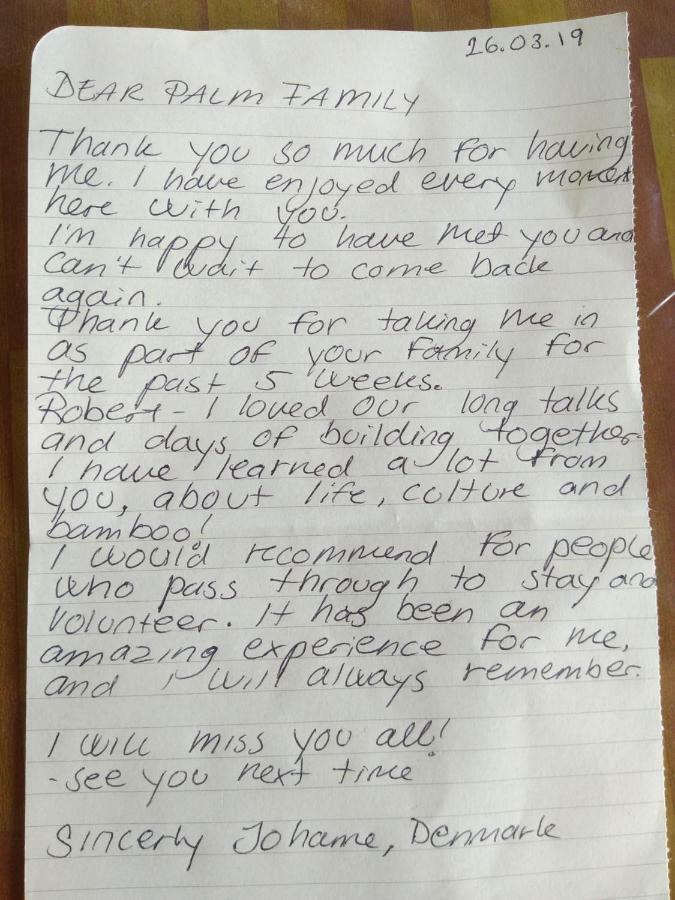 26.03.19
DEAR PALM FAMILY
Thank you so much for having
me. I have enjoyed every moment
here with you.
I'm happy to have met you and
can't wait to come back
again.
Thank you for taking me in
as part of your family for
the past 5 weeks.
Robert - I loved our long talks
and days of building together
I have learned a lot from
you, about life, culture and
bamboo!
I would recommend for people
who pass through to stay and
volunteer. It has been an
amazing experience for me,
and I will always remember.
I will miss you all!
- see you next time
Sincerly Johanne, Denmark